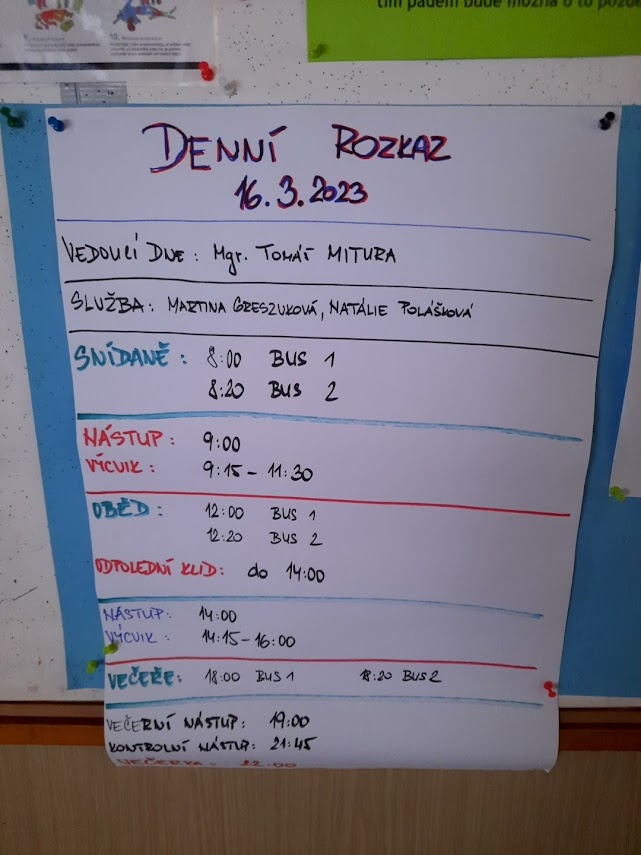 tím pádem bude možná o to pozdě
10.
DENNÍ ROZKAZ
16.3.2023
VEDOUCÍ DNE: Mgr. TOMÁŠ MITURA
SLUŽBA: MARTINA GRESZUKOVÁ, NATÁLIE POLÁŠKOVÁ
SNÍDANĚ: 8:00 BUS 1
8:20 BUS 2
NÁSTUP: 9:00
VÝCVIK: 9:15-11:30
OBĚD: 12:00 BUS 1
12:20 BUS 2
ODPOLEDNÍ KLID: do 14:00
NÁSTUP: 14:00
VÝCVIK: 14:15-16:00
VEČEŘE: 18:00 BUS 1 18:20 BUS 2
VEČERNÍ NÁSTUP: 19:00
KONTROLNÍ NÁSTUP: 21:45
VEČERKA: 22:00